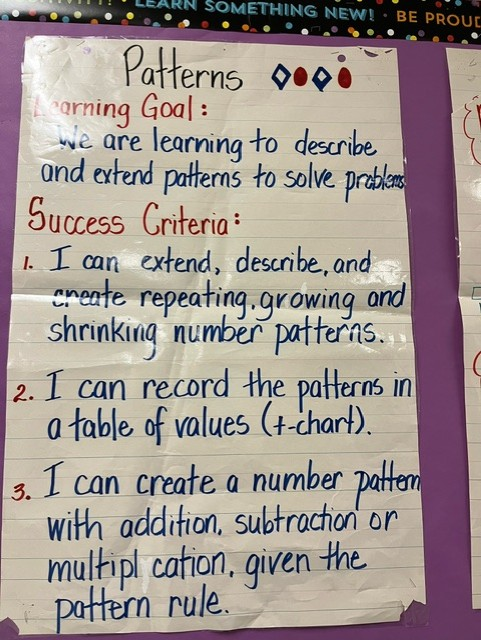 LEARN SOMETHING NEW! • BE PROUD
Patterns
Learning Goal:
We are learning to describe
and extend patterns to solve problems
Success Criteria:
1. I can extend, describe, and
create repeating, growing and
shrinking number patterns.
2. I can record the patterns in
a table of values (t-chart).
3. I can create a number pattern
with addition, subtraction or
multiplication, given the
pattern rule.